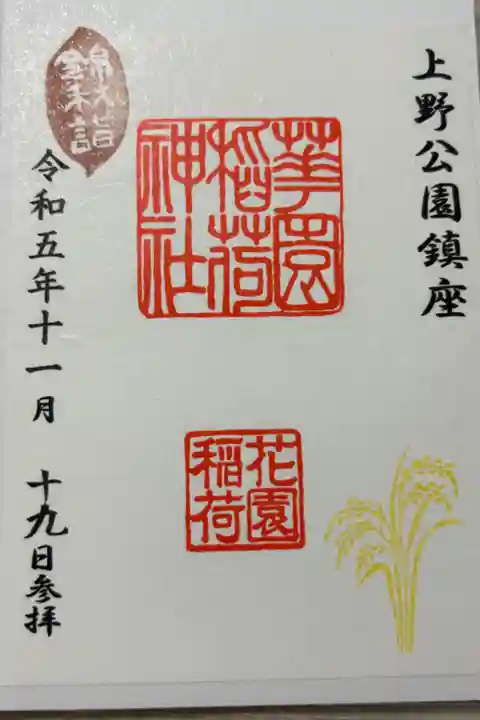 上野公園鎮座
華園
稲荷
神社
花園
稲荷
錦秋詣
令和五年十一月 十九日参拝